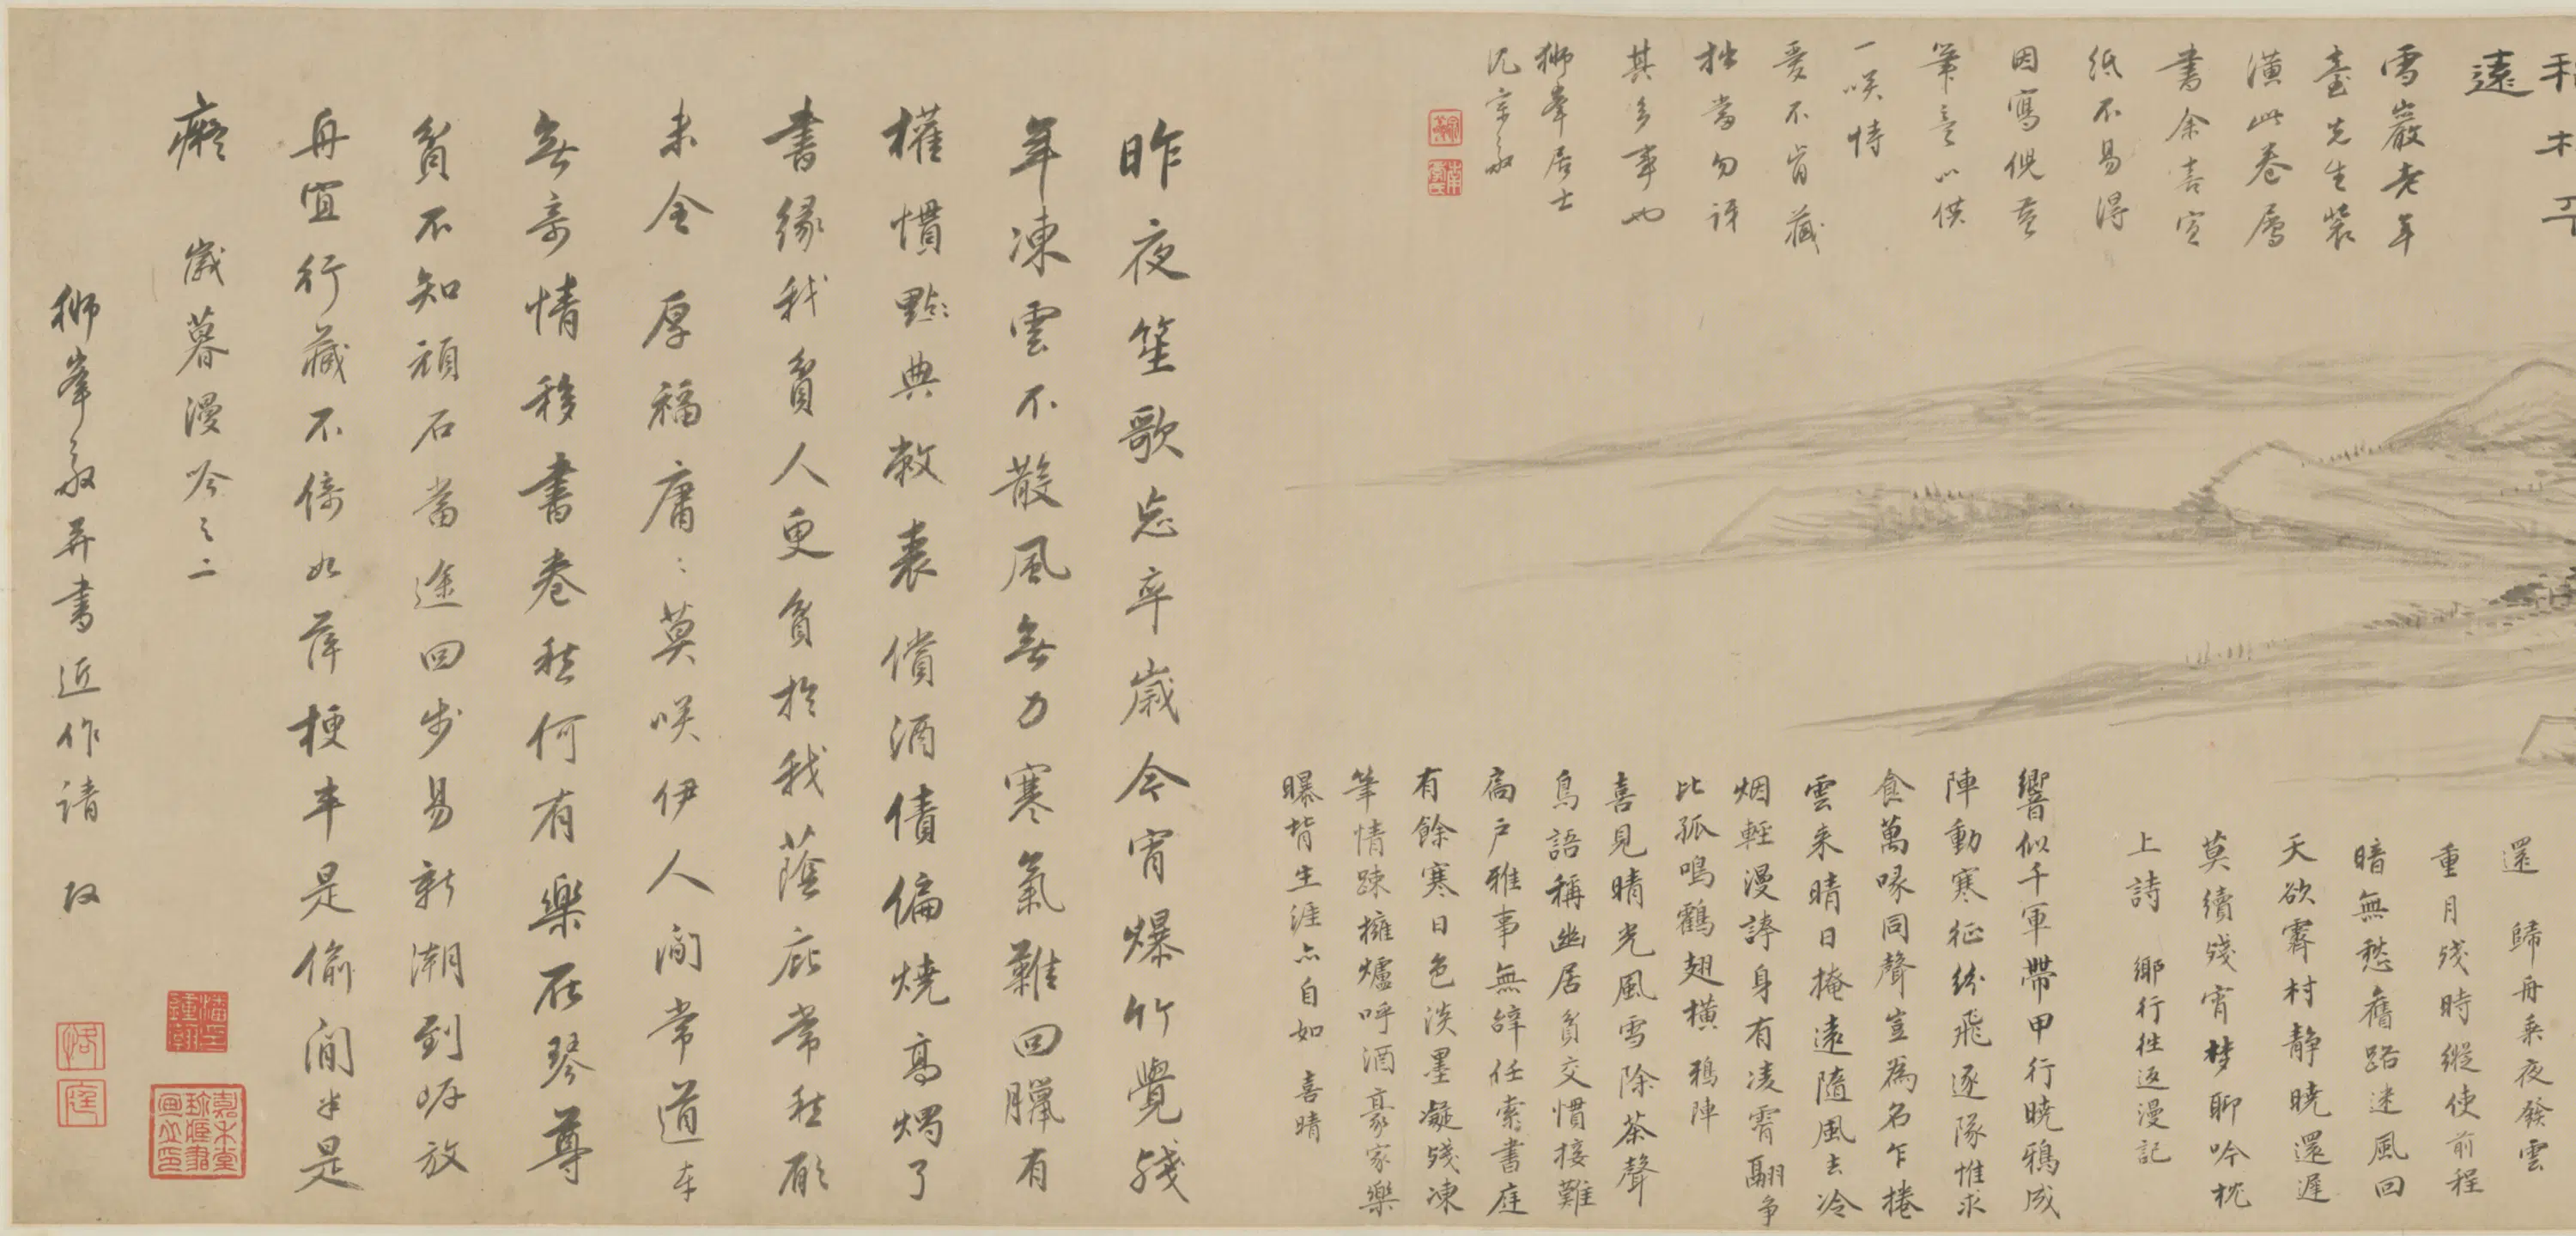 遠
雪巖老年
臺先生裝
潢此卷屬
書余喜宣
紙不易得
因寫倪黃
筆意以供
一咲恃
愛不肯藏
拙當勿訝
其多事也
獅峯居士
沈宗敬
還 歸舟乘夜發雲
重月殘時縱使前程
暗無愁舊路迷風回
天欲霽村靜曉還遲
莫續殘宵梦聊吟枕
上詩 鄉行往返漫記
響似千軍帶甲行曉鴉成
陣動寒征紛飛逐隊惟求
食萬喙同聲豈為名乍捲
雲来晴日掩遠隨風去冷
烟輕漫誇身有凌霄翮争
比孤鳴鸛翅横 鴉陣
喜見晴光風雪除茶聲
鳥語稱幽居貧交慣接難
高戶雅事無辭任索書庭
有餘寒日色淡墨凝殘凍
筆情踈擁爐呼酒豪家樂
曝背生涯亦自如 喜晴
昨夜笙歌忘卒歲今宵爆竹覺殘
年凍雲不散風無力寒氣難回臘有
權慣點典敝裘償酒債偏燒高燭了
書緣我貧人更貧於我蔭庇常愁願
未全 厚福庸:莫咲伊人間常道本
無奇情移書卷愁何有樂在琴尊
貧不知頑石當途回步易新潮到岸放
舟宜行藏不倚如萍梗半是偷閒半是
癡 歲暮漫吟之二
獅峯敬并書近作請政
恪庭